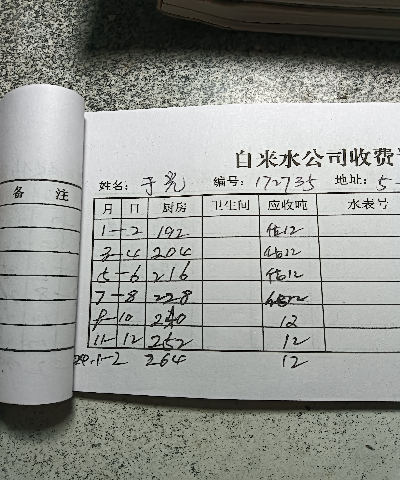 自来水公司收费
备 注
姓名：于光 编号：172735 地址：5-
月 日 厨房 卫生间 应收吨 水表号
1-2 192 估12
3-4 204 估12
5-6 216 估12
7-8 228 估12
9-10 240 12
11-12 252 12
1-2 264 12